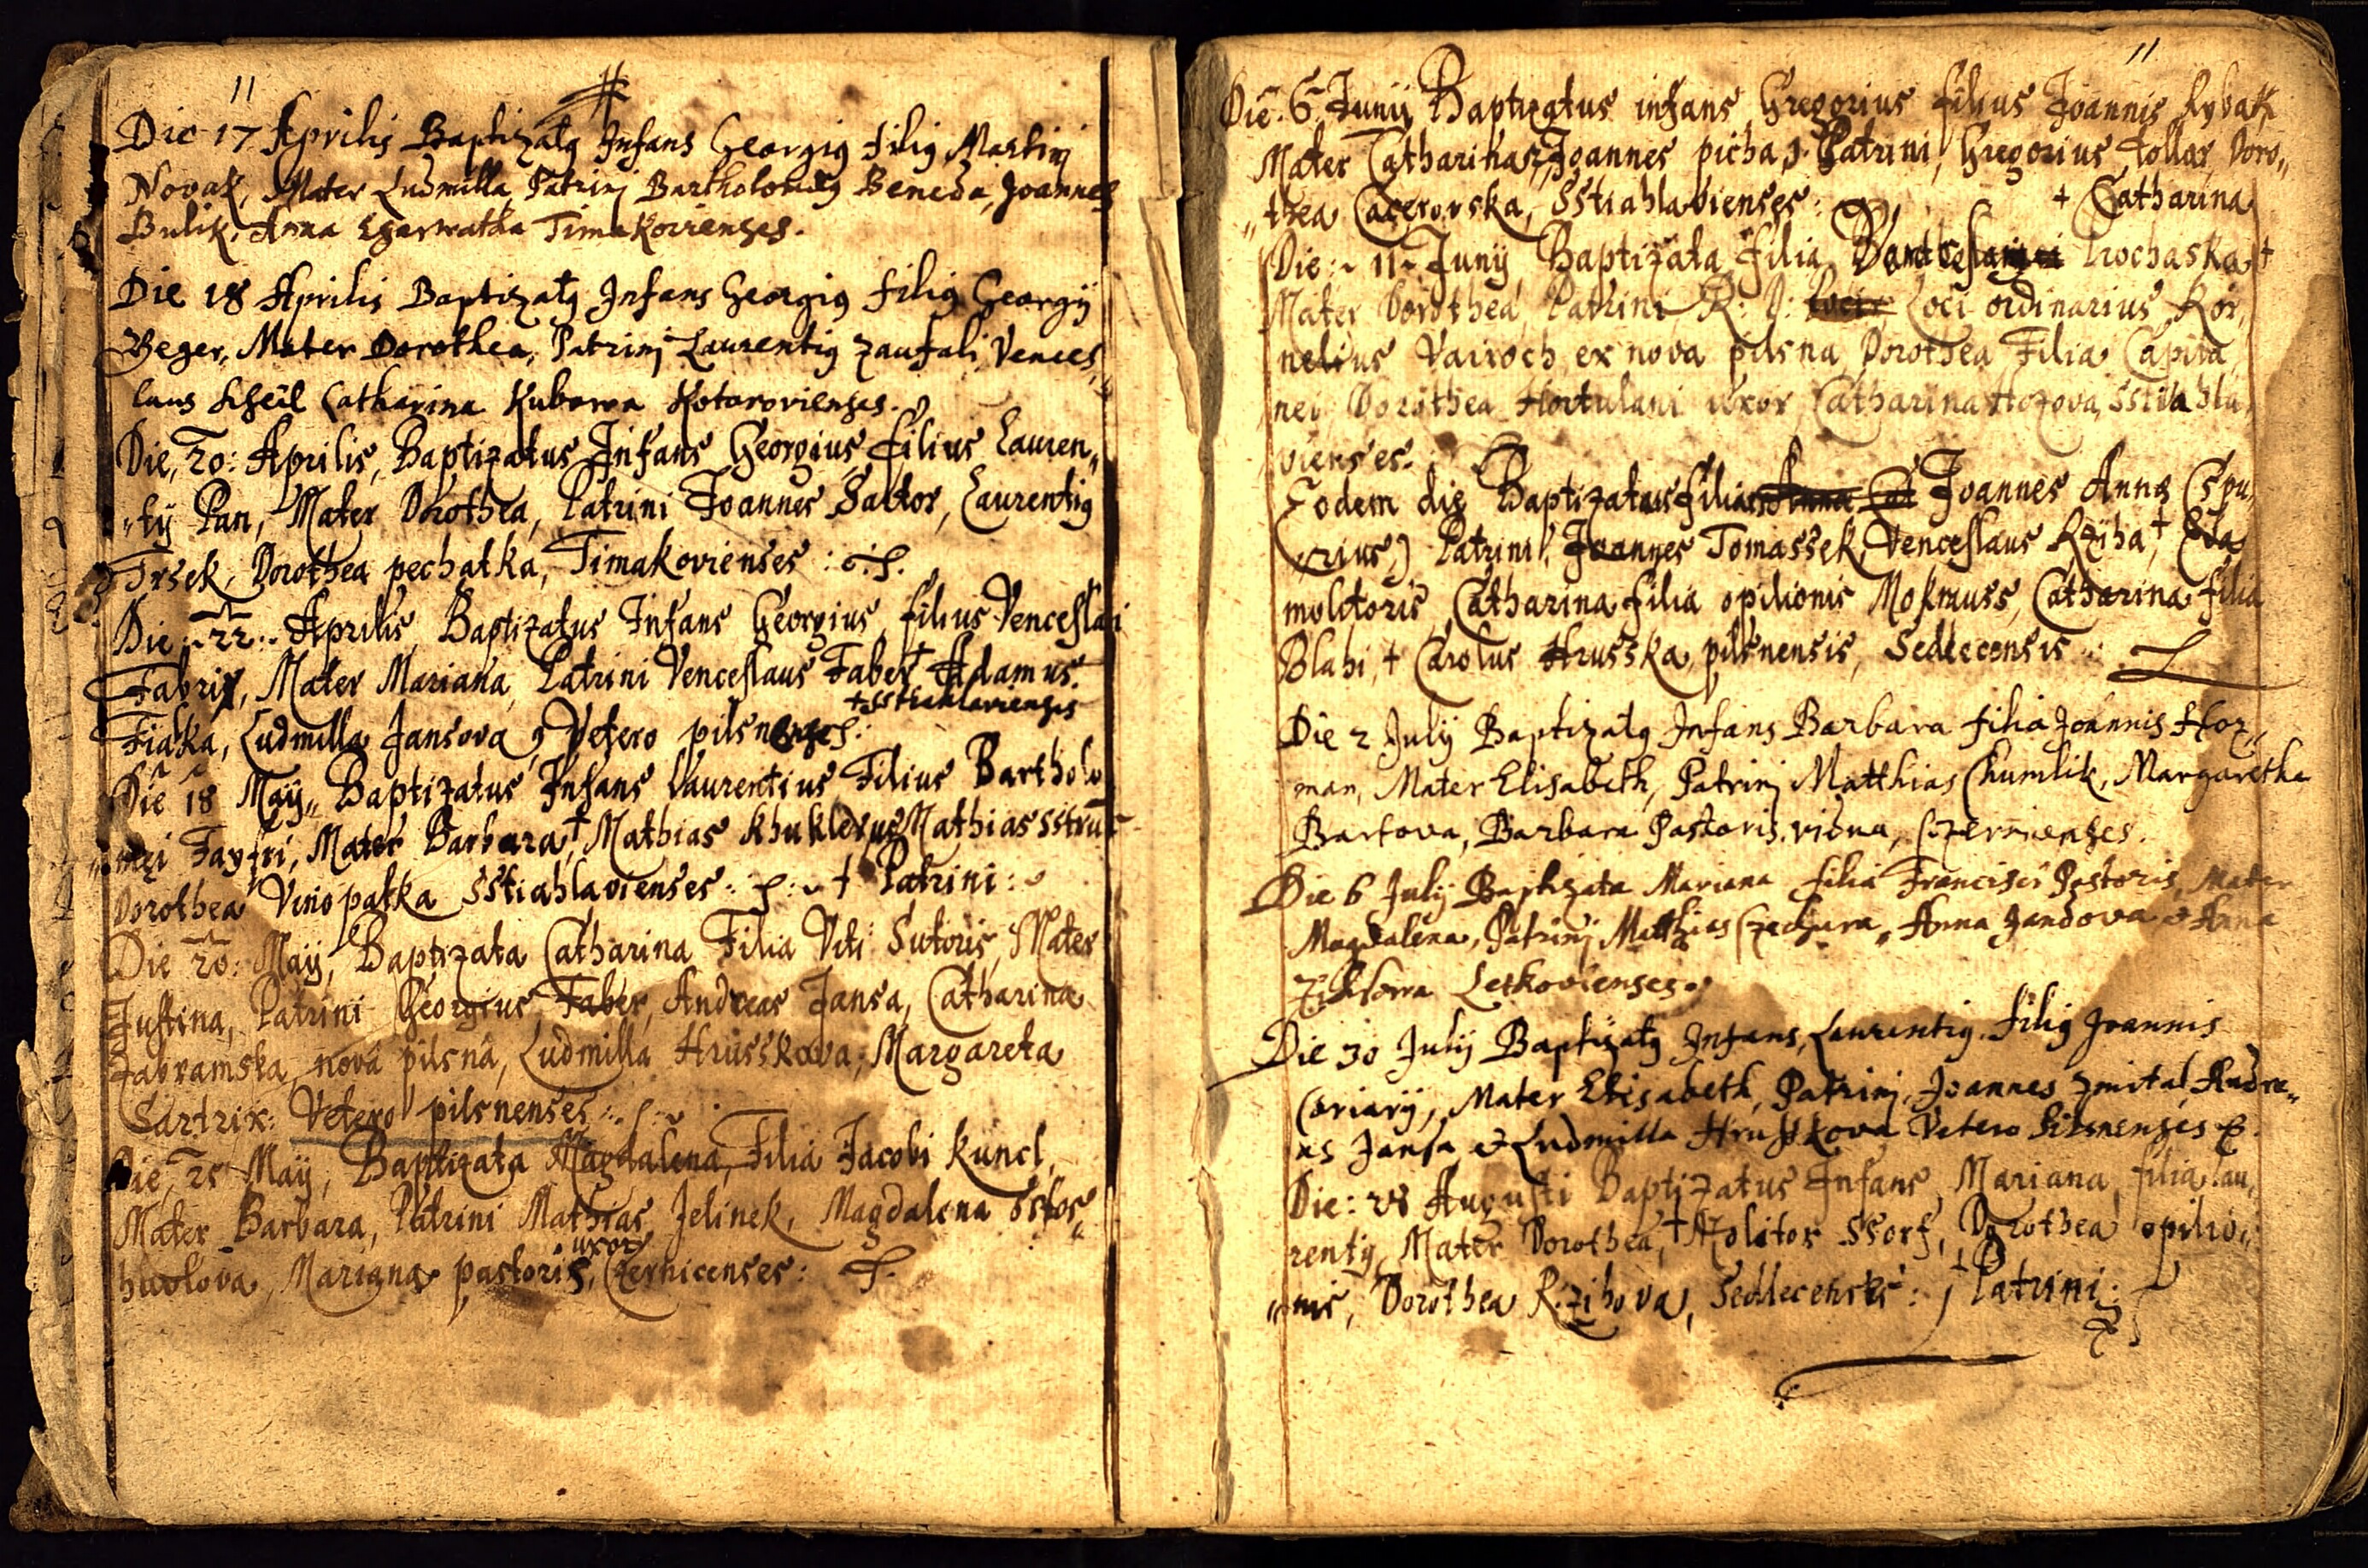 11
Die 17 Aprilis Baptizatg Infans Georgig Filig Martinj
Novak, Mater Ludmilla, Patrinj Bartholomeg Beneda, Joannes
Bulik, Anna Timakovienses.
Die 18 Aprilis Baptizatg Infans Georgig filig Georgÿ
Beger, Mater Dorothea, Patrinj Laurentig Zaufali, Vences„
laus Catharina Kubowa Kotorovienses.
Die, 20: Aprilis, Baptizatus Infans Georgius, filius Lauren„
„tÿ Pan, Mater Dorothea, Patrini Joannes Sartor, Laurentig
Trsek, Dorothea pechatka, Timakovienses :
Die 22: Aprilis, Baptizatus Infans Georgius, filius Venceslai
Fabri, Mater Mariana, Patrini Venceslaus Faber † Adamus
† Sstiahlaviensis
Fialka, Ludmilla Jansova, Vetero pilsnenses:
Die 18 Maÿ„ Baptizatus Infans Laurentius Filius Bartholo
„mei Mater Barbara, † Mathias Mathias
Dorothea Vinopalka Sstiahlavienses: † Patrini:
Die 20: Maÿ, Baptizata Catharina Filia Viti Sutoris, Mater
Justina, Patrini Georgius Faber, Andreas Jansa, Catharina
Zabramska, nova pilsna, Ludmilla Hrusskova, Margareta
Sartrix: Vetero pilsnenses:
Die, 25 Maÿ, Baptizata Magdalena, Filia Jacobi Kuncl,
Mater Barbara, Patrini Mathias Jelinek, Magdalena
uxor
Mariana pastoris, Czernicenses:
11
Die. 6. Junÿ Baptizatus infans Gregorius filius Joannis Rybak
Mater Catharina, Joannes picha, Patrini, Gregorius Doro„
„thea Cacerovska, Sstiahlavienses: † Catharina
Die: 11 Junÿ Baptizata Filia Prochaska †
Mater Dorothea, Patrini R: D: Loci ordinarius Kor„
nelius ex nova pilsna, Dorothea Filia Capita„
nei Dorothea Hortulani uxor, Catharina Sstiahla„
vienses.
Eodem die Baptizatus filius Joannes Annæ (Spu„
rius,) Patrini, Joannes Tomassek, Venceslaus Rziha, † Eva
molitoris, Catharina filia opilionis Catharina filia
Blahi, † Carolus Hrusska, pilsnensis, Sedlecensis
Die 2 Julÿ Baptizatg Infans Barbara filia Joannis Hoz„
man, Mater Elisabeth, Patrinj Matthias Chumlik, Margaretha
Bartova, Barbara Pastoris vidua, Czernicenses.
Die 6 Julÿ Baptizata Mariana filia Francisci Pastoris, Mater
Magdalena, Patrinj Matthias Czechura, Anna Jandova & Anna
Letkovienses.
Die 30 Julÿ Baptizatg Infans, Laurentig filig Joannis
Coriarÿ, Mater Elisabeth, Patrinj, Joannes Zmital, Andre„
as Jansa & Ludmilla Hrusskova Vetero Pilsnenses
Die: 28 Augusti Baptizatus Infans, Mariana, filia Lau„
rentÿ, Mater Dorothea, † Molitor Dorothea opilio„
„nis, Dorothea Rzihova, Sedlecensis: † Patrini: